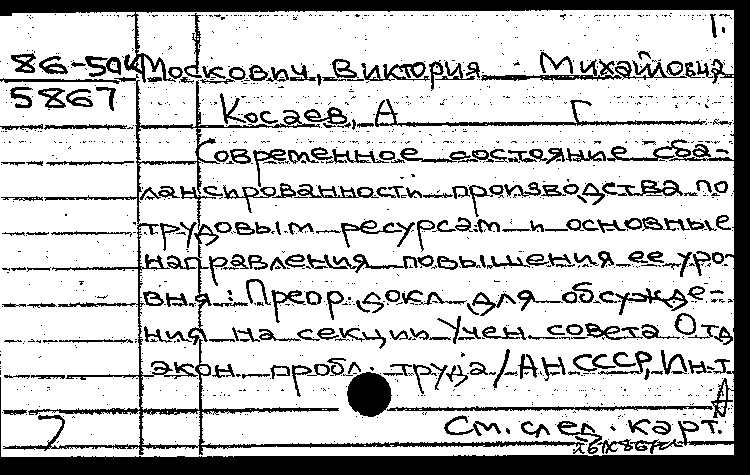 1.
86-50К Москович, Виктория Михайловна
5867 Косаев, А Г
Современное состояние сба-
лансированности производства по
трудовым ресурсам и основные
направления повышения ее уро-
вня: Препр. докл. для обсужде-
ния на секции Учен. совета Отд
экон. пробл. труда / АН СССР, Ин-т
См. след. карт.